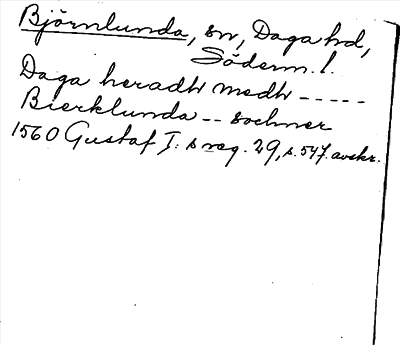 Björnlunda, sn, Daga hd,
Söderm. l.
Daga heradh medh -----
Bierklunda -- sochner
1560 Gustaf I:s reg. 29, s. 547. avskr.